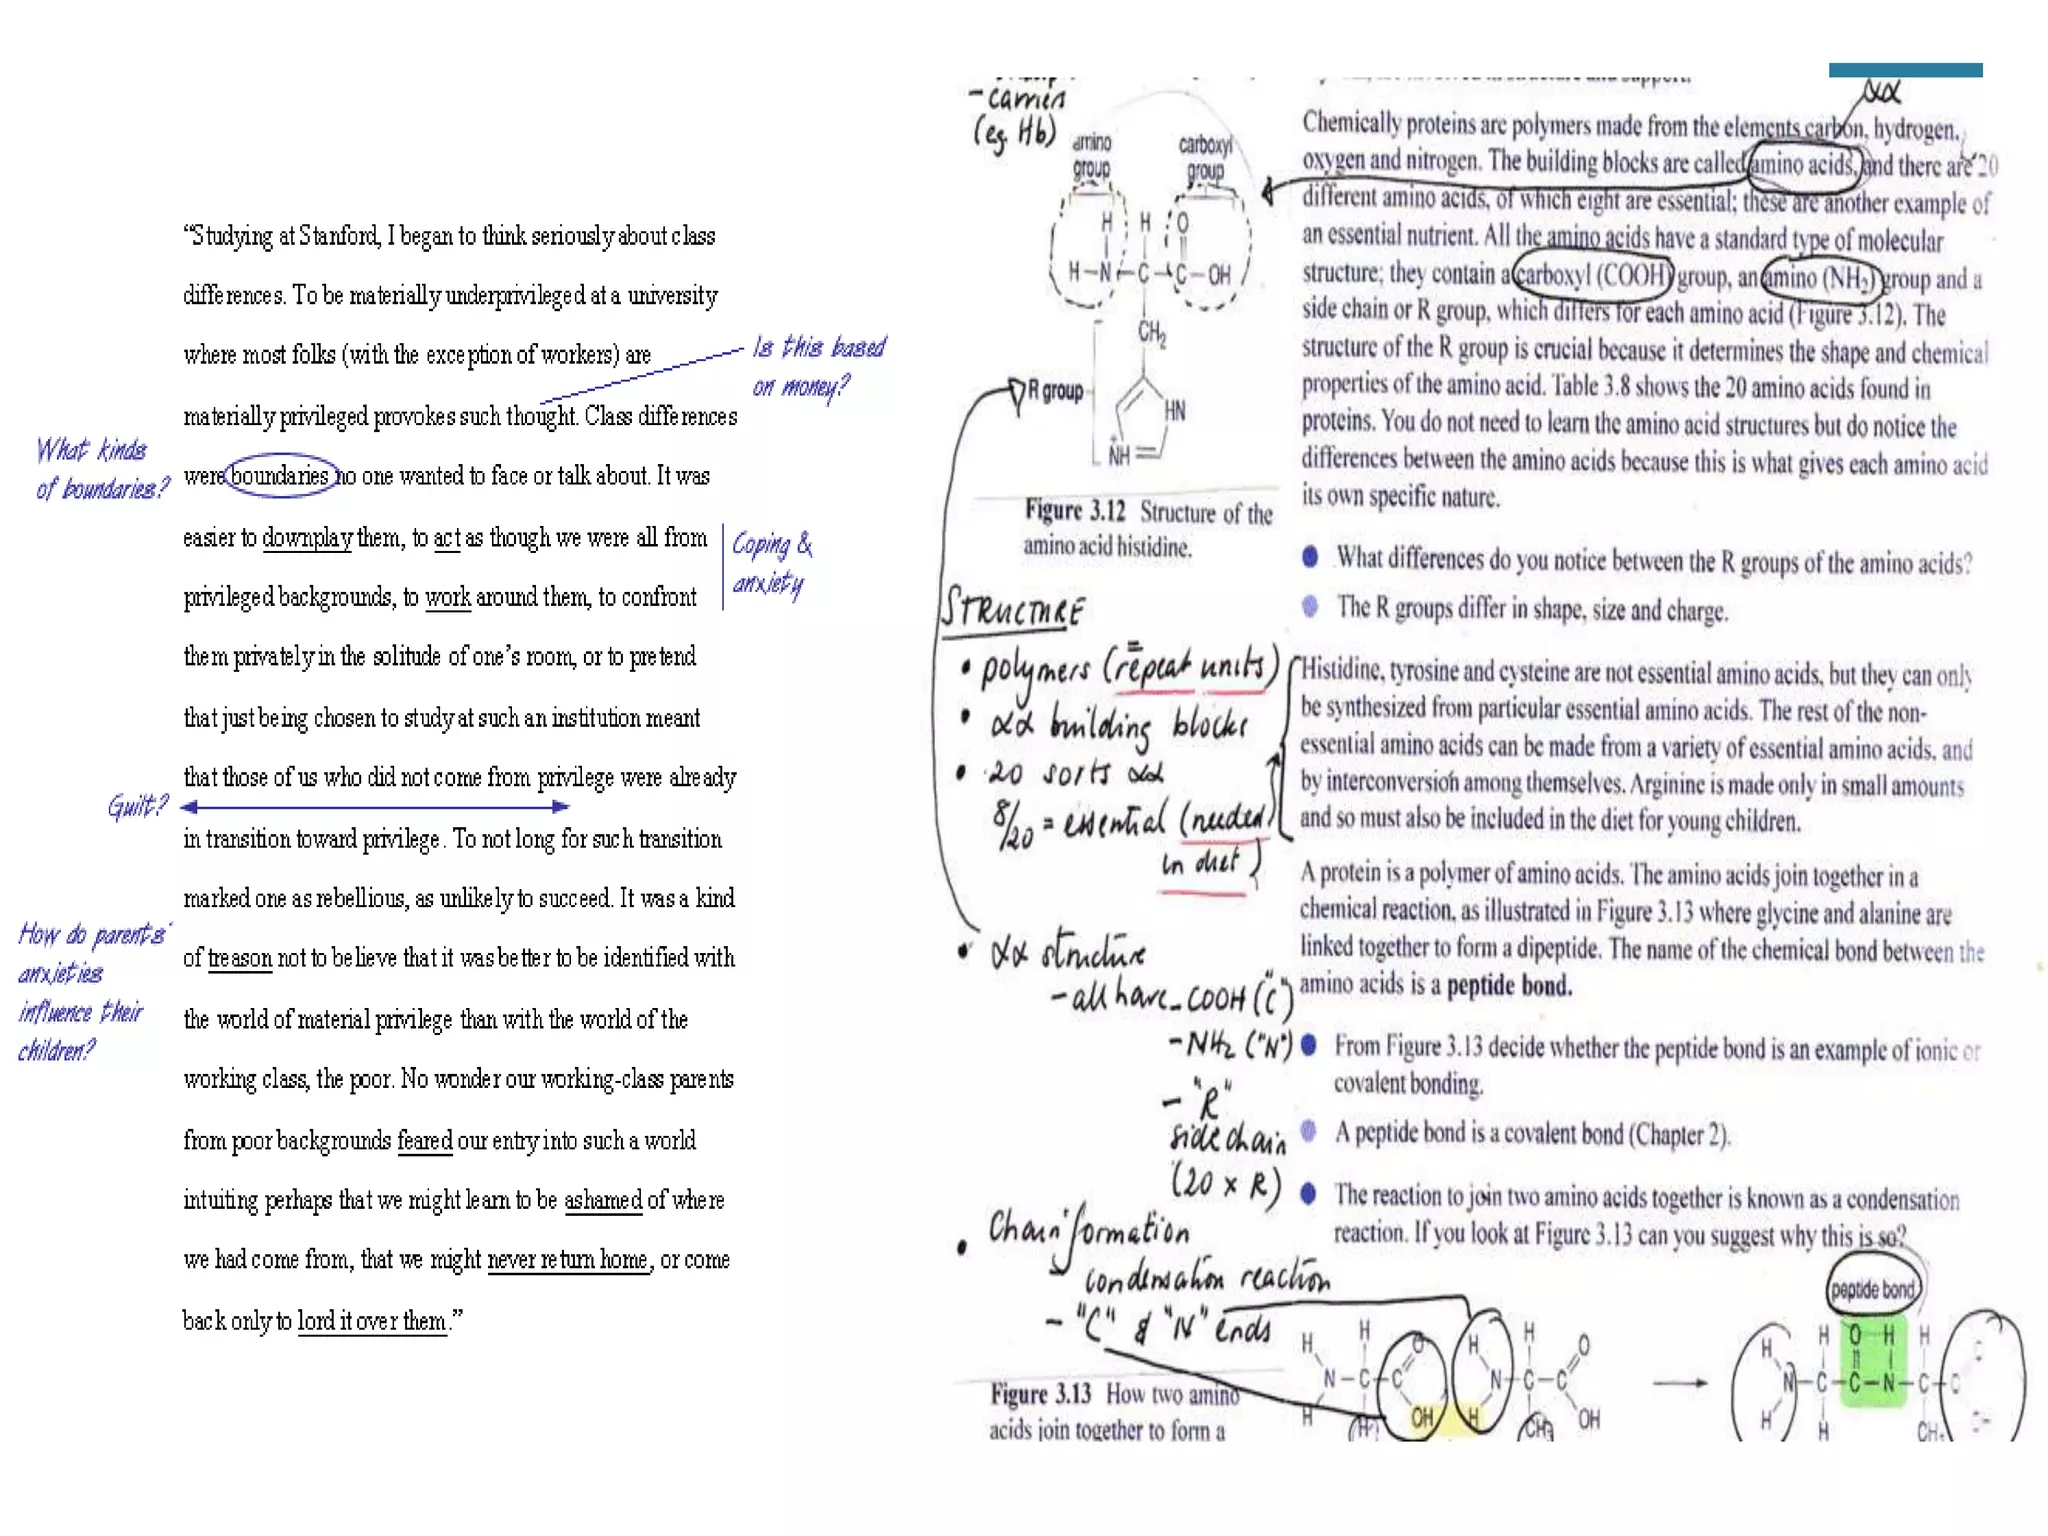 “Studying at Stanford, I began to think seriously about class
differences. To be materially underprivileged at a university
where most folks (with the exception of workers) are
materially privileged provokes such thought. Class differences
were boundaries no one wanted to face or talk about. It was
easier to downplay them, to act as though we were all from
privileged backgrounds, to work around them, to confront
them privately in the solitude of one’s room, or to pretend
that just being chosen to study at such an institution meant
that those of us who did not come from privilege were already
in transition toward privilege. To not long for such transition
marked one as rebellious, as unlikely to succeed. It was a kind
of treason not to believe that it was better to be identified with
the world of material privilege than with the world of the
working class, the poor. No wonder our working-class parents
from poor backgrounds feared our entry into such a world
intuiting perhaps that we might learn to be ashamed of where
we had come from, that we might never return home, or come
back only to lord it over them.”
Is this based
on money?
What kinds
of boundaries?
Coping &
anxiety
Guilt?
How do parents'
anxieties
influence their
children?
- carriers
(eg. Hb)
amino
group
carboxyl
group
H H O
H–N–C–C–OH
CH₂
R group
HN
NH
+
Figure 3.12 Structure of the
amino acid histidine.
STRUCTURE
• polymers (repeat units)
=
• αα building blocks
• 20 sorts αα
8/20 = essential (needed
in diet)
• αα structure
- all have -COOH ("C")
- NH₂ ("N")
- "R"
side chain
(20 x R)
• Chain formation
- condensation reaction
- "C" & "N" ends
Figure 3.13 How two amino
acids join together to form a
support.
αα
Chemically proteins are polymers made from the elements carbon, hydrogen,
oxygen and nitrogen. The building blocks are called amino acids, and there are 20
different amino acids, of which eight are essential; these are another example of
an essential nutrient. All the amino acids have a standard type of molecular
structure; they contain a carboxyl (COOH) group, an amino (NH₂) group and a
side chain or R group, which differs for each amino acid (Figure 3.12). The
structure of the R group is crucial because it determines the shape and chemical
properties of the amino acid. Table 3.8 shows the 20 amino acids found in
proteins. You do not need to learn the amino acid structures but do notice the
differences between the amino acids because this is what gives each amino acid
its own specific nature.
● What differences do you notice between the R groups of the amino acids?
● The R groups differ in shape, size and charge.
Histidine, tyrosine and cysteine are not essential amino acids, but they can only
be synthesized from particular essential amino acids. The rest of the non-
essential amino acids can be made from a variety of essential amino acids, and
by interconversion among themselves. Arginine is made only in small amounts
and so must also be included in the diet for young children.
A protein is a polymer of amino acids. The amino acids join together in a
chemical reaction, as illustrated in Figure 3.13 where glycine and alanine are
linked together to form a dipeptide. The name of the chemical bond between the
amino acids is a peptide bond.
● From Figure 3.13 decide whether the peptide bond is an example of ionic or
covalent bonding.
● A peptide bond is a covalent bond (Chapter 2).
● The reaction to join two amino acids together is known as a condensation
reaction. If you look at Figure 3.13 can you suggest why this is so?
peptide bond
H H O H H O H H O H H
N–C–C N–C–C N–C–C–N–C–C
H H OH H CH₃ OH H H CH₃